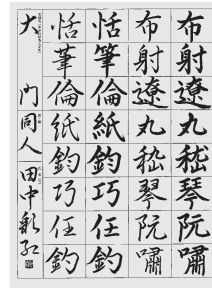 布射遼丸嵇琴阮嘯
布射遼丸嵇琴阮嘯
恬筆倫紙鈞巧任釣
恬筆倫紙鈞巧任釣
門同人 田中